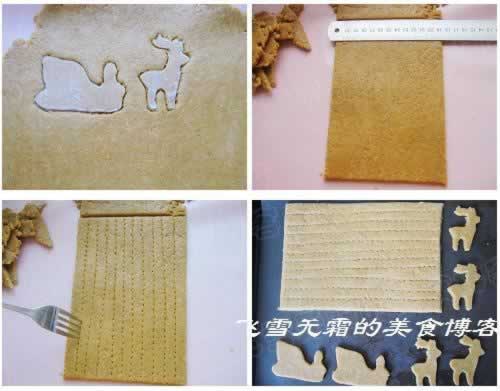 飞雪无霜的美食博客